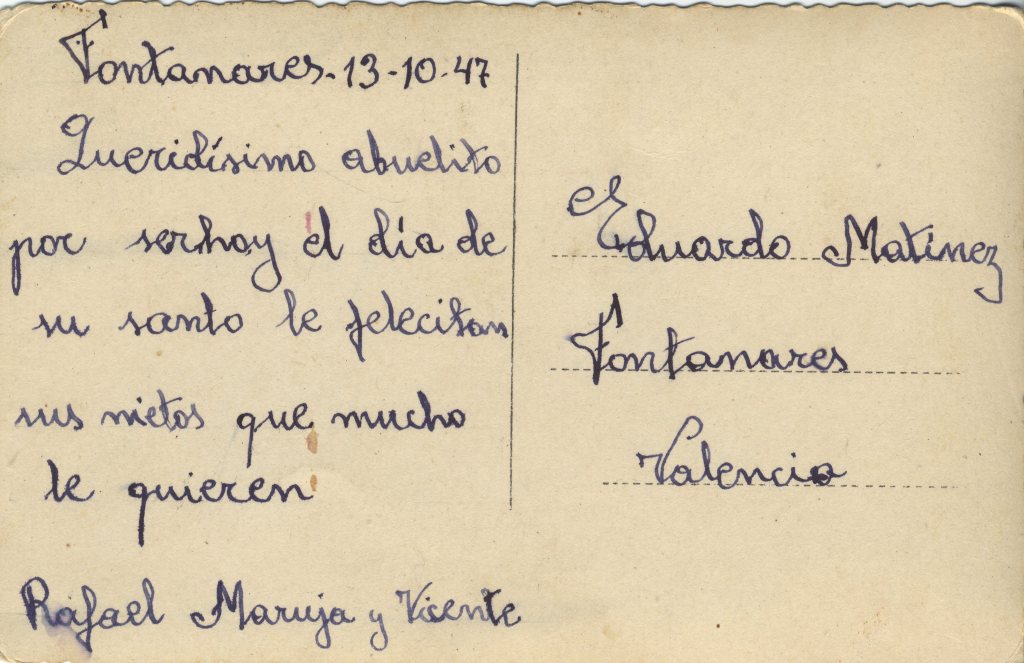 Fontanares-13-10-47
Queridísimo abuelito
por ser hoy el día de
su santo le felecitan
sus nietos que mucho
le quieren
Rafael Maruja y Vicente
Eduardo Matinez
Fontanares
Valencia